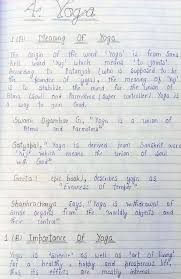 4. Yoga
1 (A) Meaning Of Yoga
The origin of the word 'Yoga' is from Sans
krit word 'Yuj' which means 'to joints'.
According to Patanjali (who is supposed to be
the founder of yoga) the meaning of 'Yog'
is to stabilize the mind for the union of
Atma (soul) and Parmatma (super controller). Yoga is
a way to gain God.
Swami Digambar Ji, "Yoga is a union of
Atma and Parmatma"
Satyapal, "Yoga is derived from Sanskrit word
'Yuj' which means the union of soul
with God"
Geeta : epic book, describes yoga as
"Evenness of temper"
Shankracharya Says, "Yoga is withdrawal of
sense organs from the worldly objects and
their control"
1 (B) Importance Of Yoga
Yoga is 'science' as well as 'art of living'
for a healthy happy and prosperous life
this effects are mostly internal